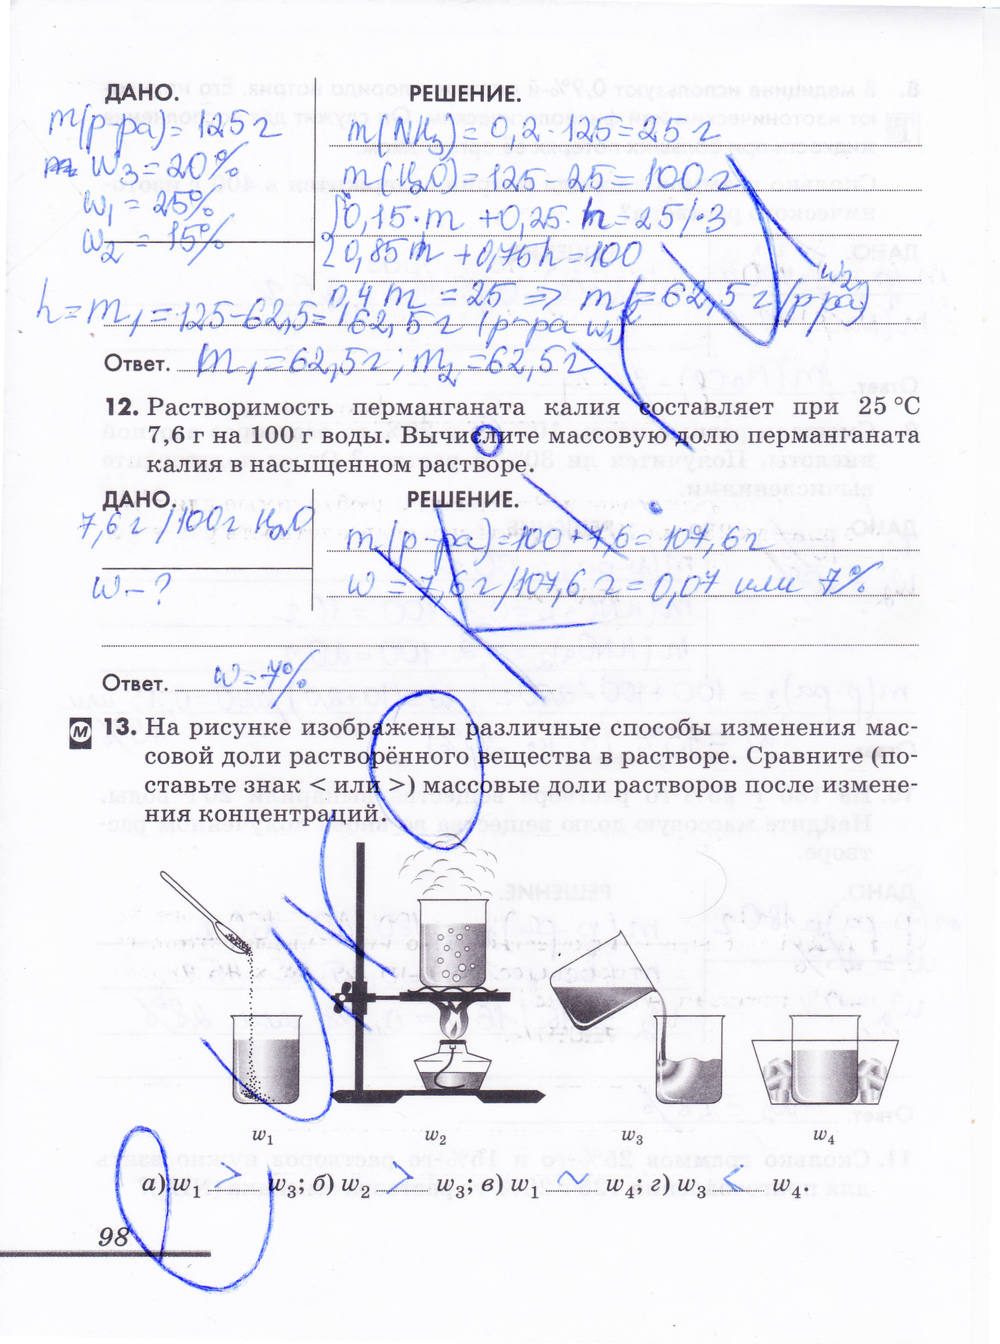 ДАНО. РЕШЕНИЕ.
m(р-ра) = 125 г m(NH3) = 0,2·125 = 25 г
w3 = 20% m(H2O) = 125 - 25 = 100 г
w1 = 25% 0,15·m + 0,25·n = 25 /·3
w2 = 15% 0,85m + 0,75n = 100
0,4m = 25 => m = 62,5 г (р-ра w2)
n = m1 = 125-62,5 = 162,5 г (р-ра w1)
Ответ. m1 = 62,5 г; m2 = 62,5 г
12. Растворимость перманганата калия составляет при 25 °С
7,6 г на 100 г воды. Вычислите массовую долю перманганата
калия в насыщенном растворе.
ДАНО. РЕШЕНИЕ.
7,6 г /100 г H2O m(р-ра) = 100 + 7,6 = 107,6 г
w - ? w = 7,6 г/107,6 г = 0,07 или 7%
Ответ. w = 7%
м 13. На рисунке изображены различные способы изменения мас-
совой доли растворённого вещества в растворе. Сравните (по-
ставьте знак < или >) массовые доли растворов после измене-
ния концентраций.
w1 w2 w3 w4
а) w1 > w3; б) w2 > w3; в) w1 w4; г) w3 < w4.
98